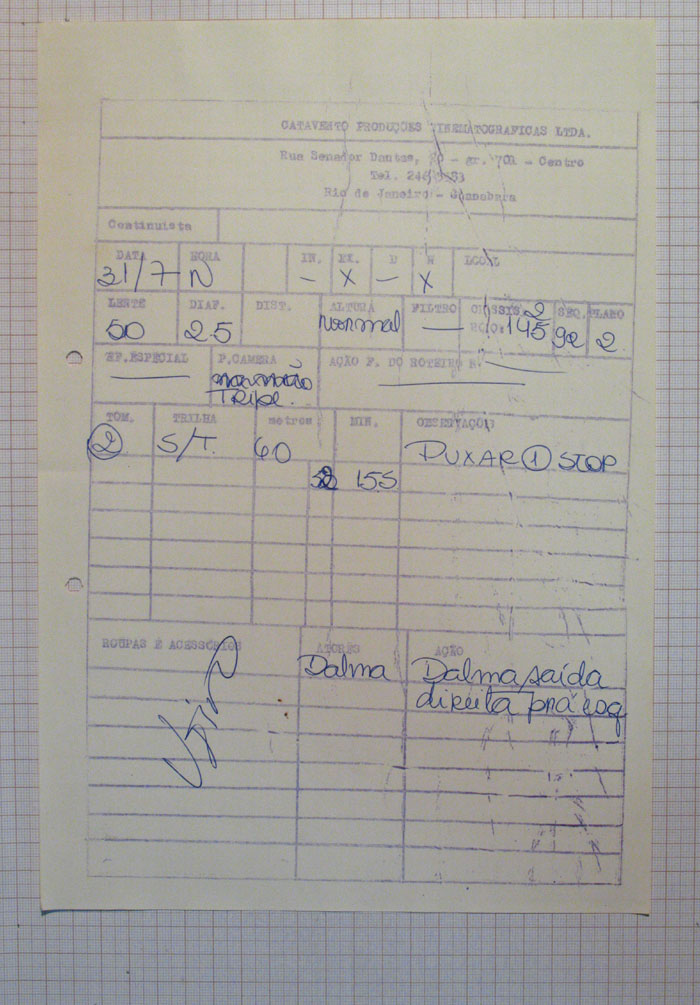 CATAVENTO PRODUÇÕES CINEMATOGRAFICAS LTDA.
Rua Senador Dantas, 20 - gr. 701 - Centro
Tel.
Rio de Janeiro - Guanabara
Continuista
DATA HORA IN. EX. D N LOCAL
31/7 N — X — X
LENTE DIAF. DIST. ALTURA FILTRO CHASSIS 2 SEQ. PLANO
50 2.5 Normal — 145 92 2
EF. ESPECIAL P. CAMERA AÇÃO P. DO ROTEIRO
Tripe.
TOM. TRILHA metros MIN. OBSERVAÇÕES
2 S/T. 60 PUXAR 1 STOP
155
ROUPAS E ACESSÓRIOS ATORES AÇÃO
Dalma Dalma, saída
direita prá esq